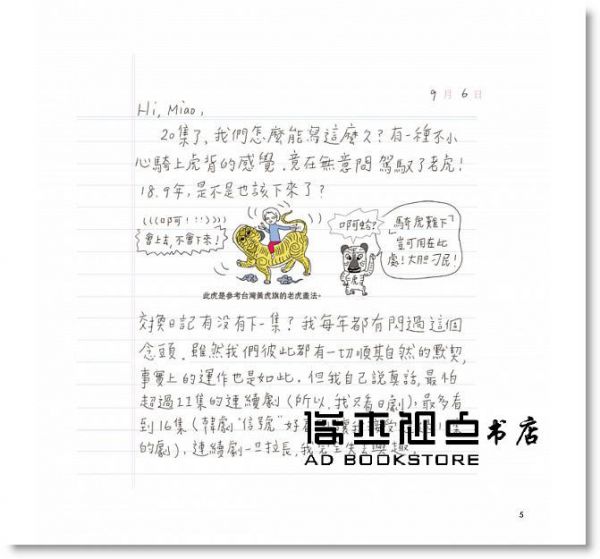 9月6日
Hi, Miao,
20集了, 我們怎麼能寫這麼久? 有一種不小
心騎上虎背的感覺. 竟在無意間駕馭了老虎!
18.9年, 是不是也該下來了?
(((叩可!::)))
會上去, 不會下來!
叩阿蛤?
騎虎難下
豈可用在此
處! 大胆刁民!
此虎是參考台灣黃虎旗的老虎畫法。
交換日記有沒有下一集? 我每年都有閃過這個
念頭. 雖然我們彼此都有一切順其自然的默契,
事實上的運作也是如此. 但我自己說真話, 最怕
超過11集的連續劇 (所以, 我只看日劇), 最多看
到16集 (韓劇“信號”好
的劇), 連續劇一旦拉長, 我
AD BOOKSTORE
书店
5